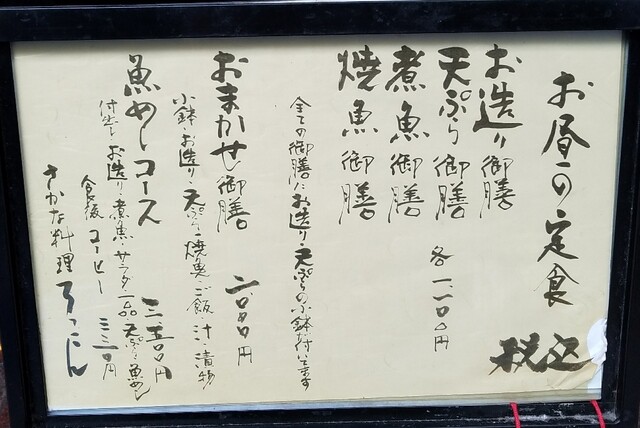 お昼の定食
税込
お造り御膳
天ぷら御膳 各一、一〇〇円
煮魚御膳
焼魚御膳
全ての御膳にお造り・天ぷらの小鉢が付いてます
おまかせ御膳 二、〇〇〇円
小鉢・お造り・天ぷら・焼魚・ご飯・汁・漬物
魚めしコース 三、三〇〇円
付出し・お造り・煮魚・サラダ・一品・天ぷら・魚めし
食後 コーヒー 三三〇円
さかな料理